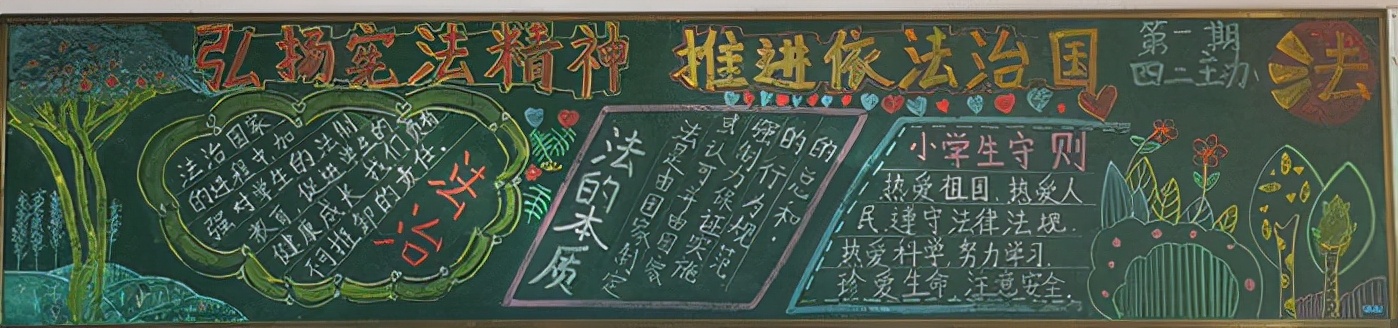 弘扬宪法精神 推进依法治国
第二期
四二主办
法
法治国家
的进程中,加
强对学生的法制
教育,促进学生的
健康成长,我们责无
法治
法的本质
法是由国家制定
或认可并由国家
强制力保证实施
的行为规范
的总和.
小学生守则
热爱祖国,热爱人
民,遵守法律法规.
热爱科学,努力学习.
珍爱生命,注意安全.